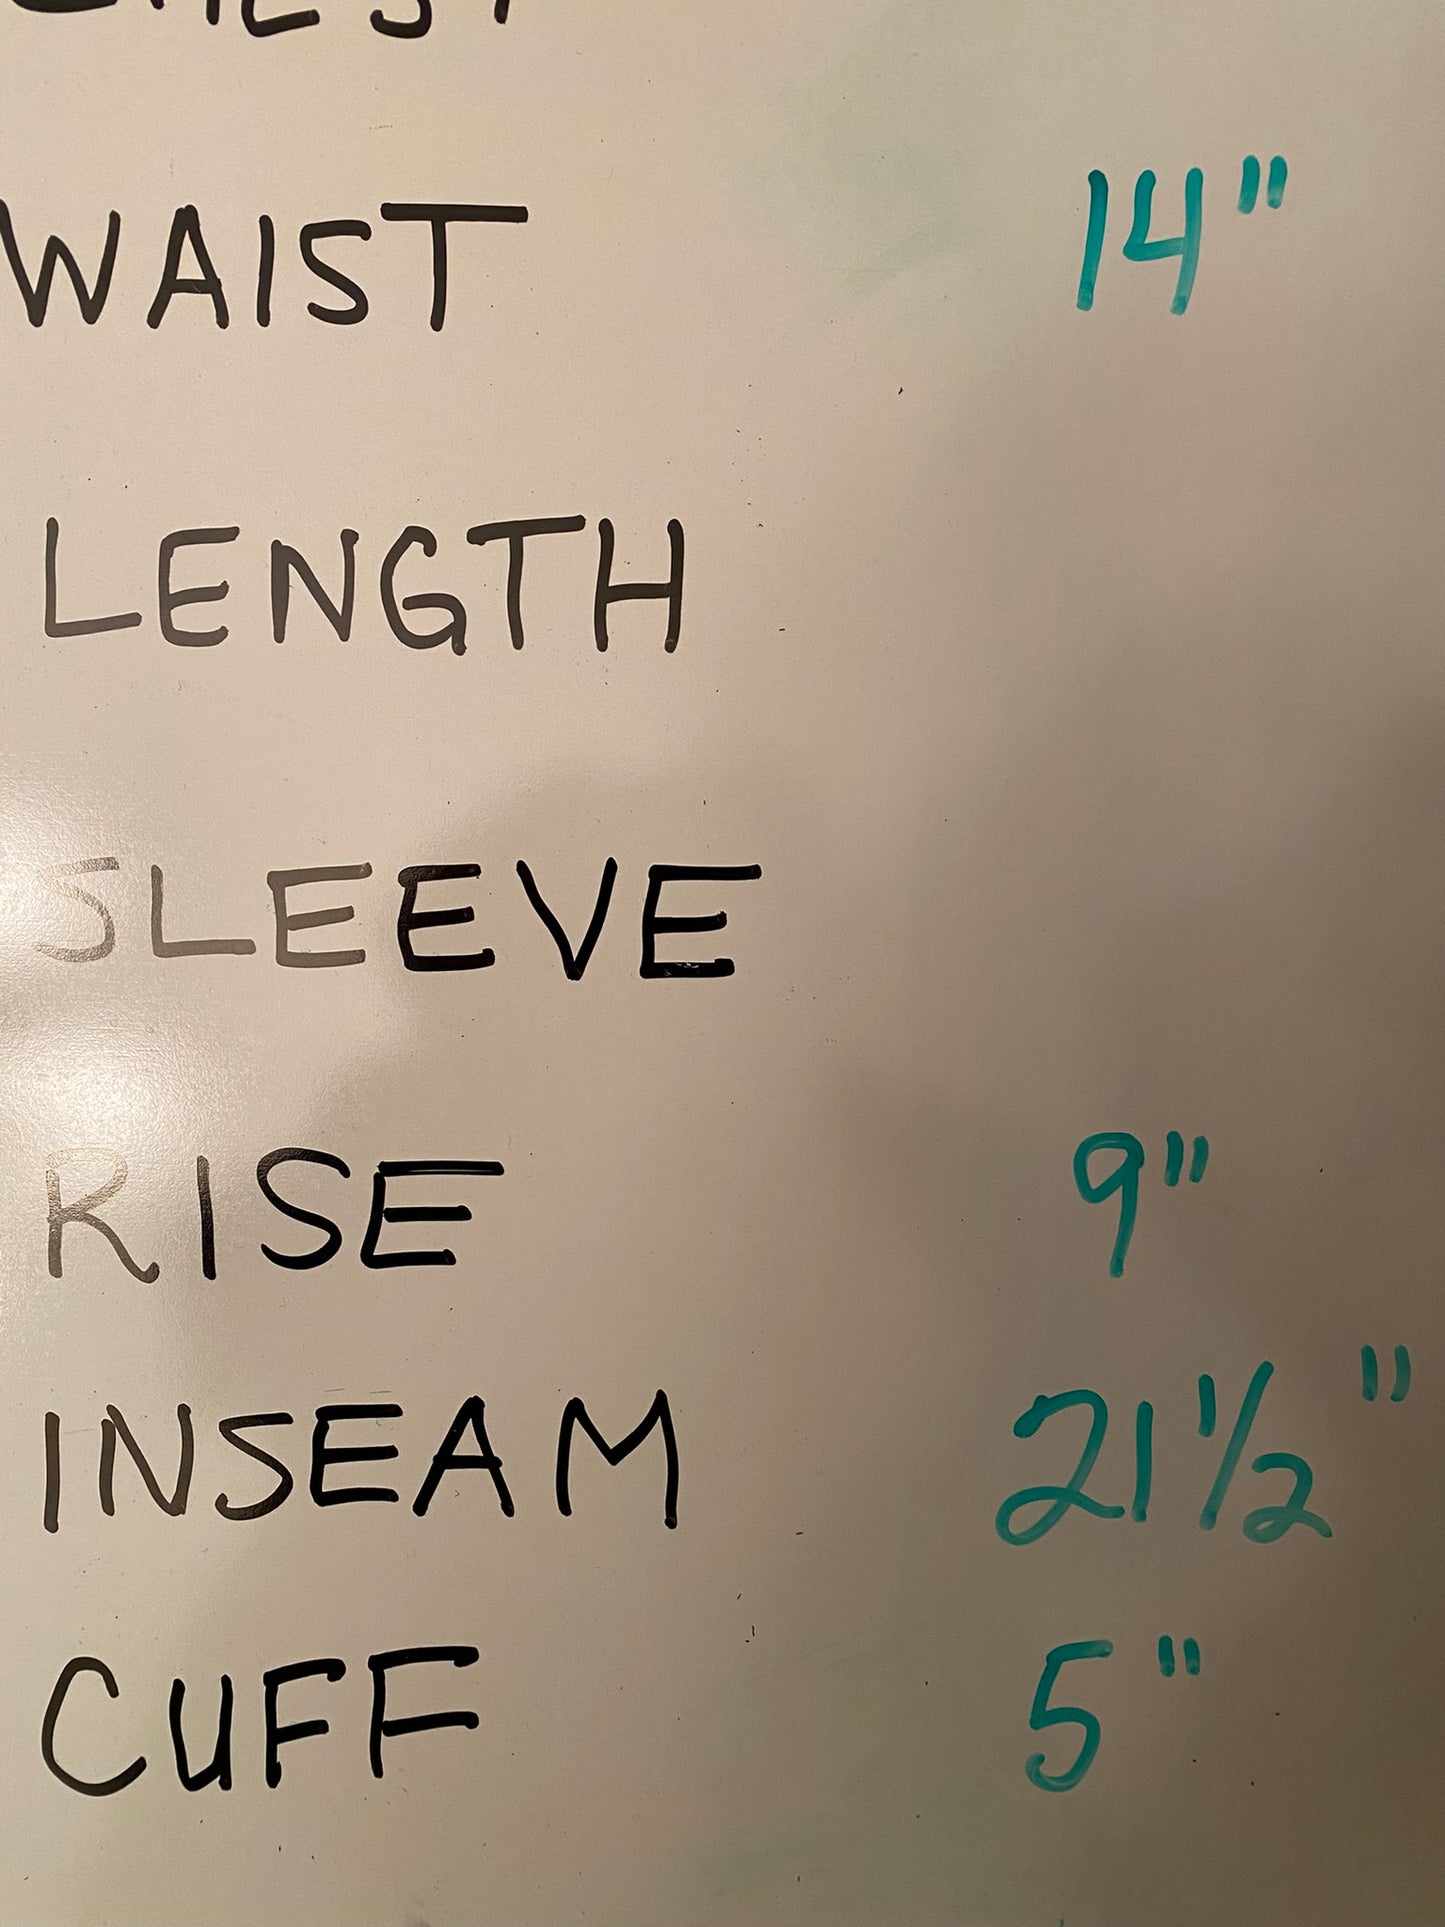 CHEST
WAIST 14"
LENGTH
SLEEVE
RISE 9"
INSEAM 21 1/2"
CUFF 5"